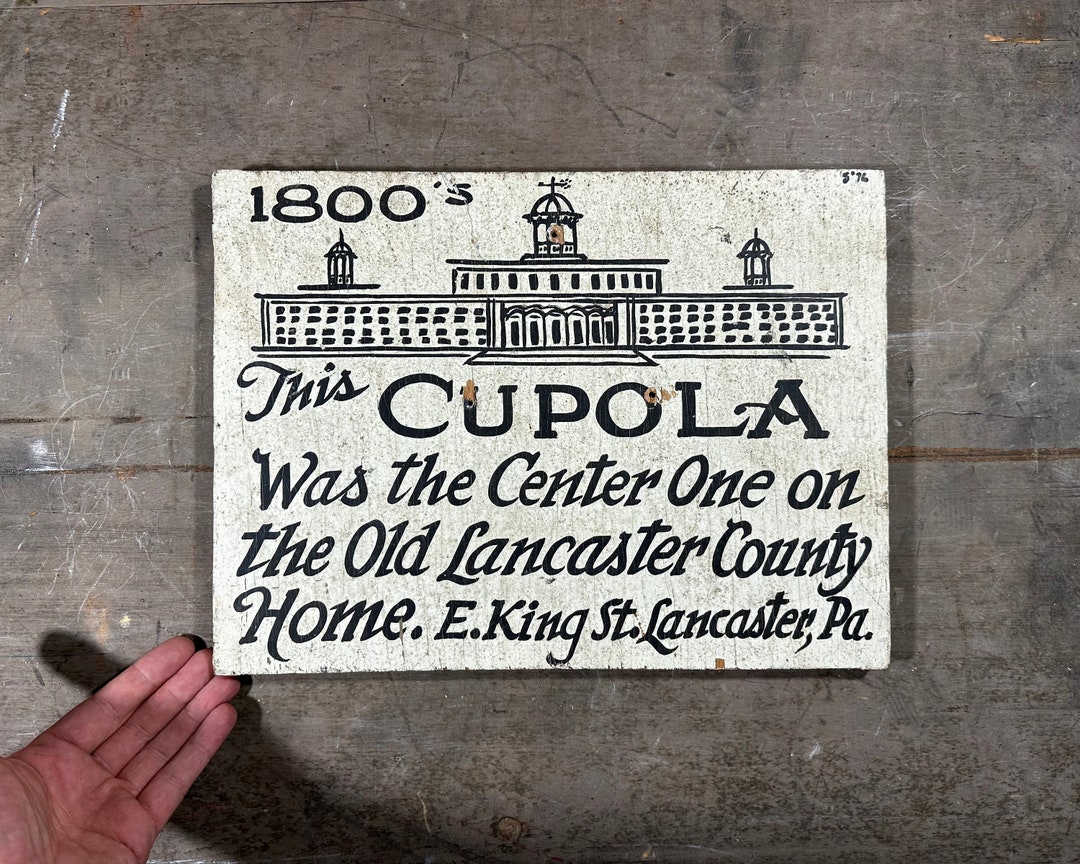 1800's
S°76
This CUPOLA
Was the Center One on
the Old Lancaster County
Home. E. King St. Lancaster, Pa.